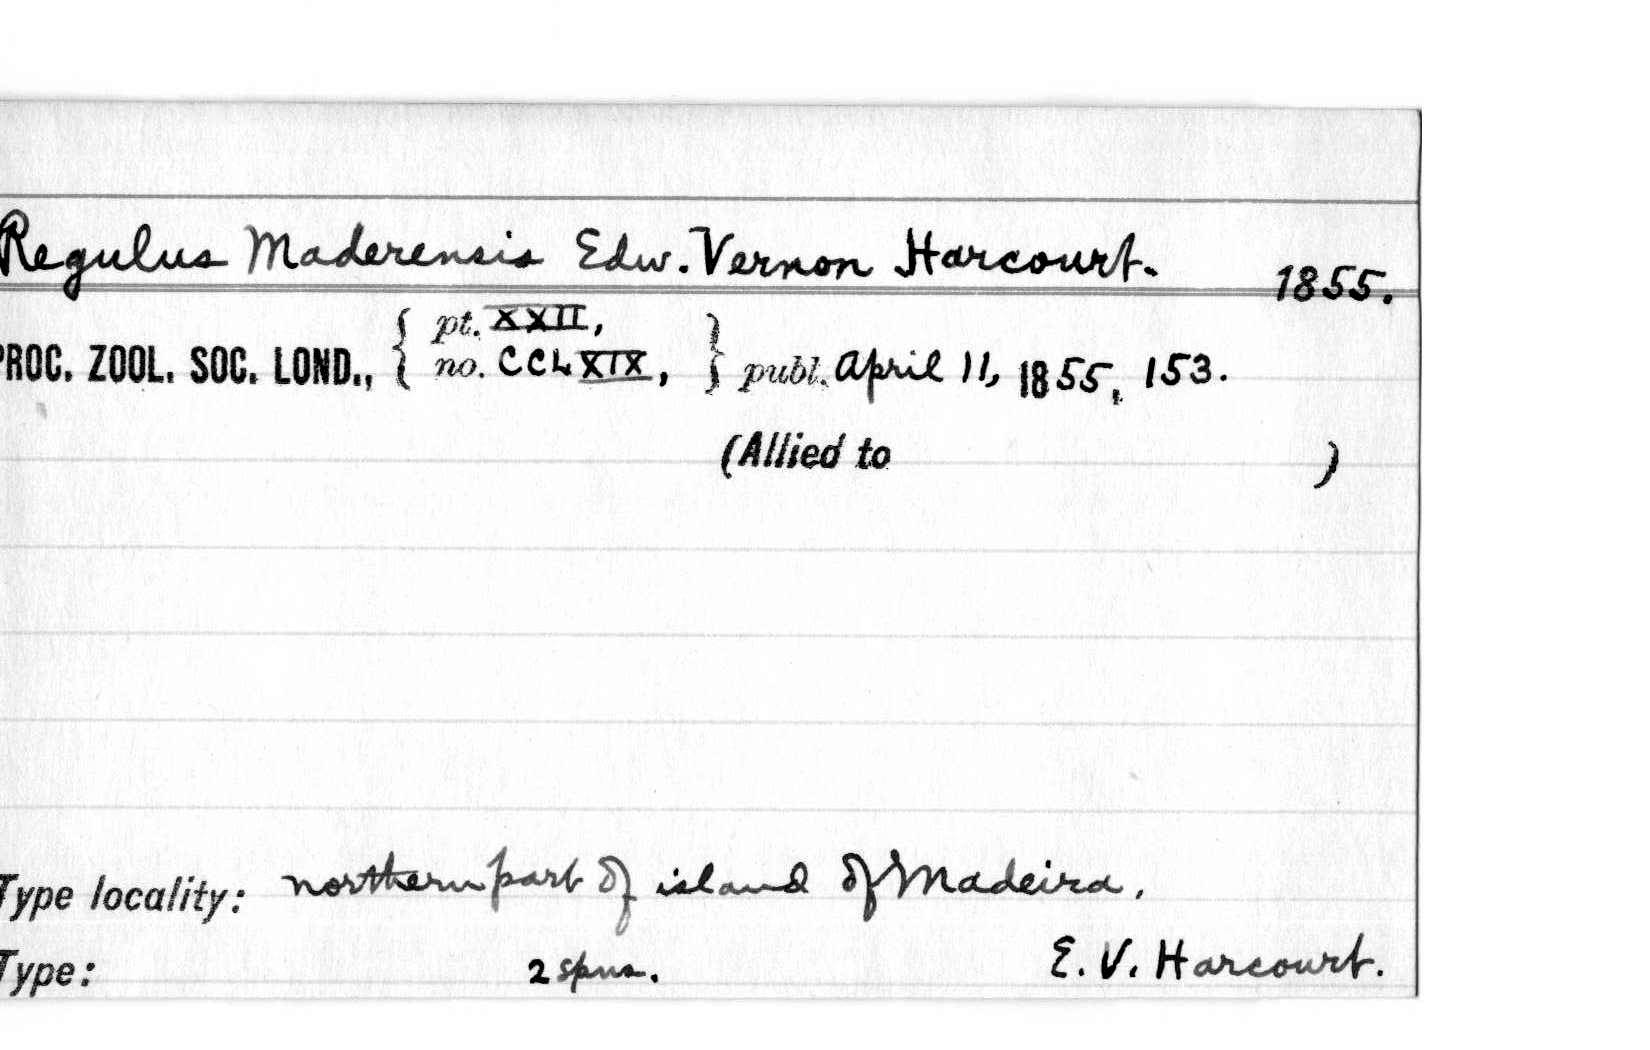 Regulus Maderensis Edw. Vernon Harcourt. 1855.
PROC. ZOOL. SOC. LOND., { pt. XXII, no. CCLXIX, } publ. April 11, 1855, 153.
(Allied to )
Type locality: northern part of island of Madeira.
Type: 2 spns. E. V. Harcourt.